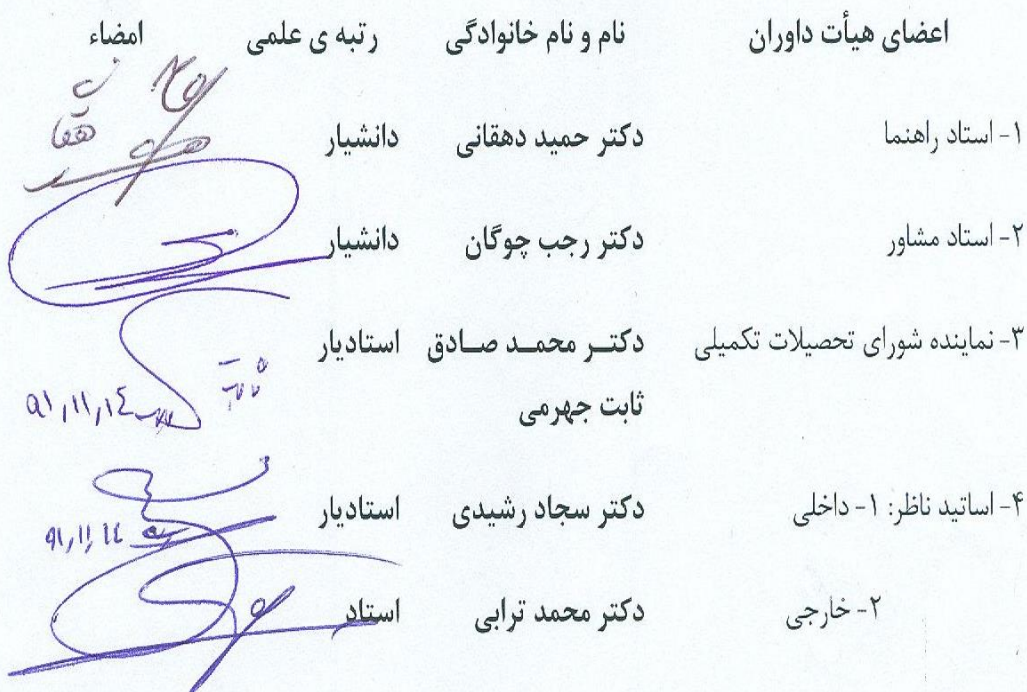 اعضای هیأت داوران نام و نام خانوادگی رتبه ی علمی امضاء
۱- استاد راهنما دکتر حمید دهقانی دانشیار
۲- استاد مشاور دکتر رجب چوگان دانشیار
۳- نماینده شورای تحصیلات تکمیلی دکتـر محمـد صـادق استادیار
ثابت جهرمی
۹۱,۱۱,۱٤
۴- اساتید ناظر: ۱- داخلی دکتر سجاد رشیدی استادیار
۹۱,۱۱,۱٤
۲- خارجی دکتر محمد ترابی استاد